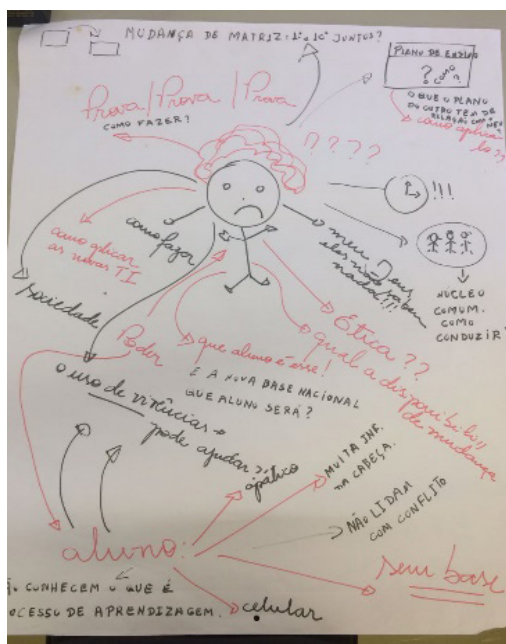 MUDANÇA DE MATRIZ: 1º e 10º JUNTOS?
PLANO DE ENSINO
?
COMO?
O QUE O PLANO
DO OUTRO TEM DE
RELAÇÃO COM O MEU?
como aplicá
los??
Prova/Prova/Prova
COMO FAZER?
? ? ? ?
!!!
como aplicar
as novas TI
como fazer
meu Deus
eles não sabem
nada!!!
NÚCLEO
COMUM.
COMO
CONDUZIR?
sociedade
Poder
Ética ??
qual a disponibili//
de mudança
que aluno é esse!
E A NOVA BASE NACIONAL
QUE ALUNO SERÁ?
o uso de vivências
pode ajudar?
apático
MUITA INF.
NA CABEÇA.
NÃO LIDAM
COM CONFLITO
aluno:
sem base
CONHECEM O QUE É
OCESSO DE APRENDIZAGEM.
celular